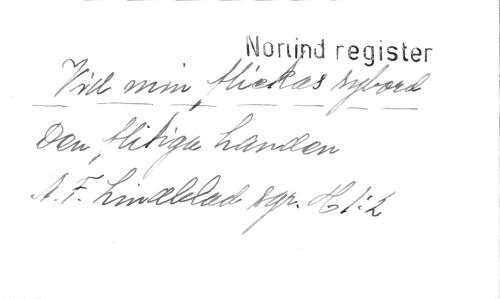 Nortind register
Vid min flickas sybord
Den flitiga handen
A. F. Lindblad sgr. H 1:2